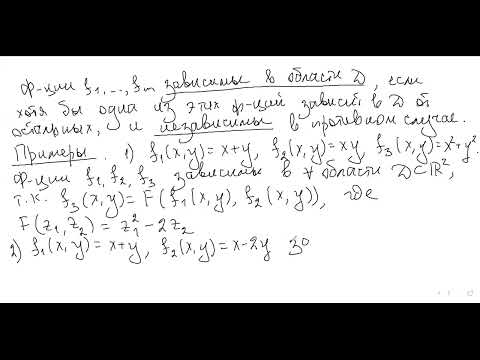 Ф-ции f₁,...,fₘ зависимы в области D, если
хотя бы одна из этих ф-ций зависит в D от
остальных, и независимы в противном случае.
Примеры. 1) f₁(x,y)=x+y, f₂(x,y)=xy, f₃(x,y)=x²+y².
Ф-ции f₁, f₂, f₃ зависимы в ∀ области D⊂ℝ²,
т.к. f₃(x,y)=F(f₁(x,y), f₂(x,y)), где
F(z₁,z₂)=z₁²-2z₂
2) f₁(x,y)=x+y, f₂(x,y)=x-2y